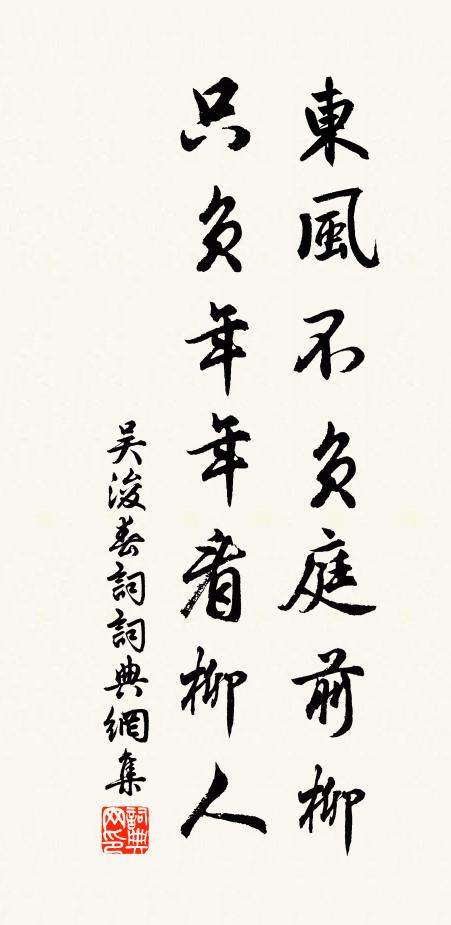 東風不負庭前柳
只負年年看柳人
吴浚春詞詞典網集
詞典網印